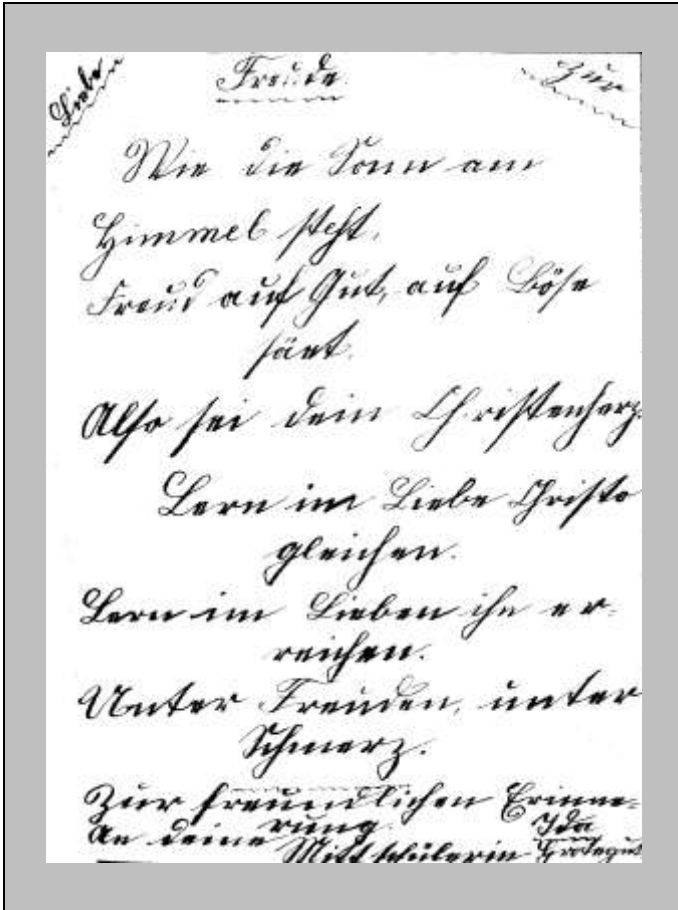 Liebe Freude. Zur
Wie die Sonn am
Himmel steht,
Freud auf Gut, auf Böse
säet.
Also sei dein Christenherz.
Lern im Liebe Christo
gleichen.
Lern im Lieben ihn er-
reichen.
Unter Freuden, unter
Schmerz.
Zur freundlichen Erinne-
rung
An deine Mittschülerin Ida